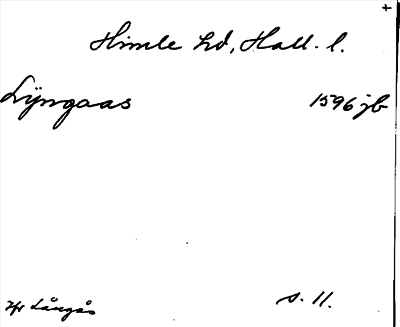 +
Himle hd, Hall. l.
Lÿngaas 1596 jb
Hr Långås s. 11.